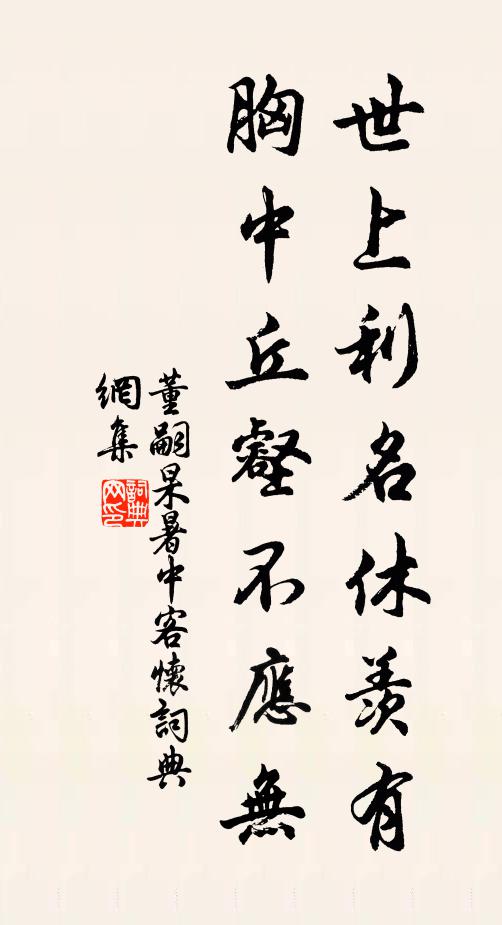 世上利名休羨有
胸中丘壑不應無
董嗣杲暑中客懷詞典
網集
詞典
網印